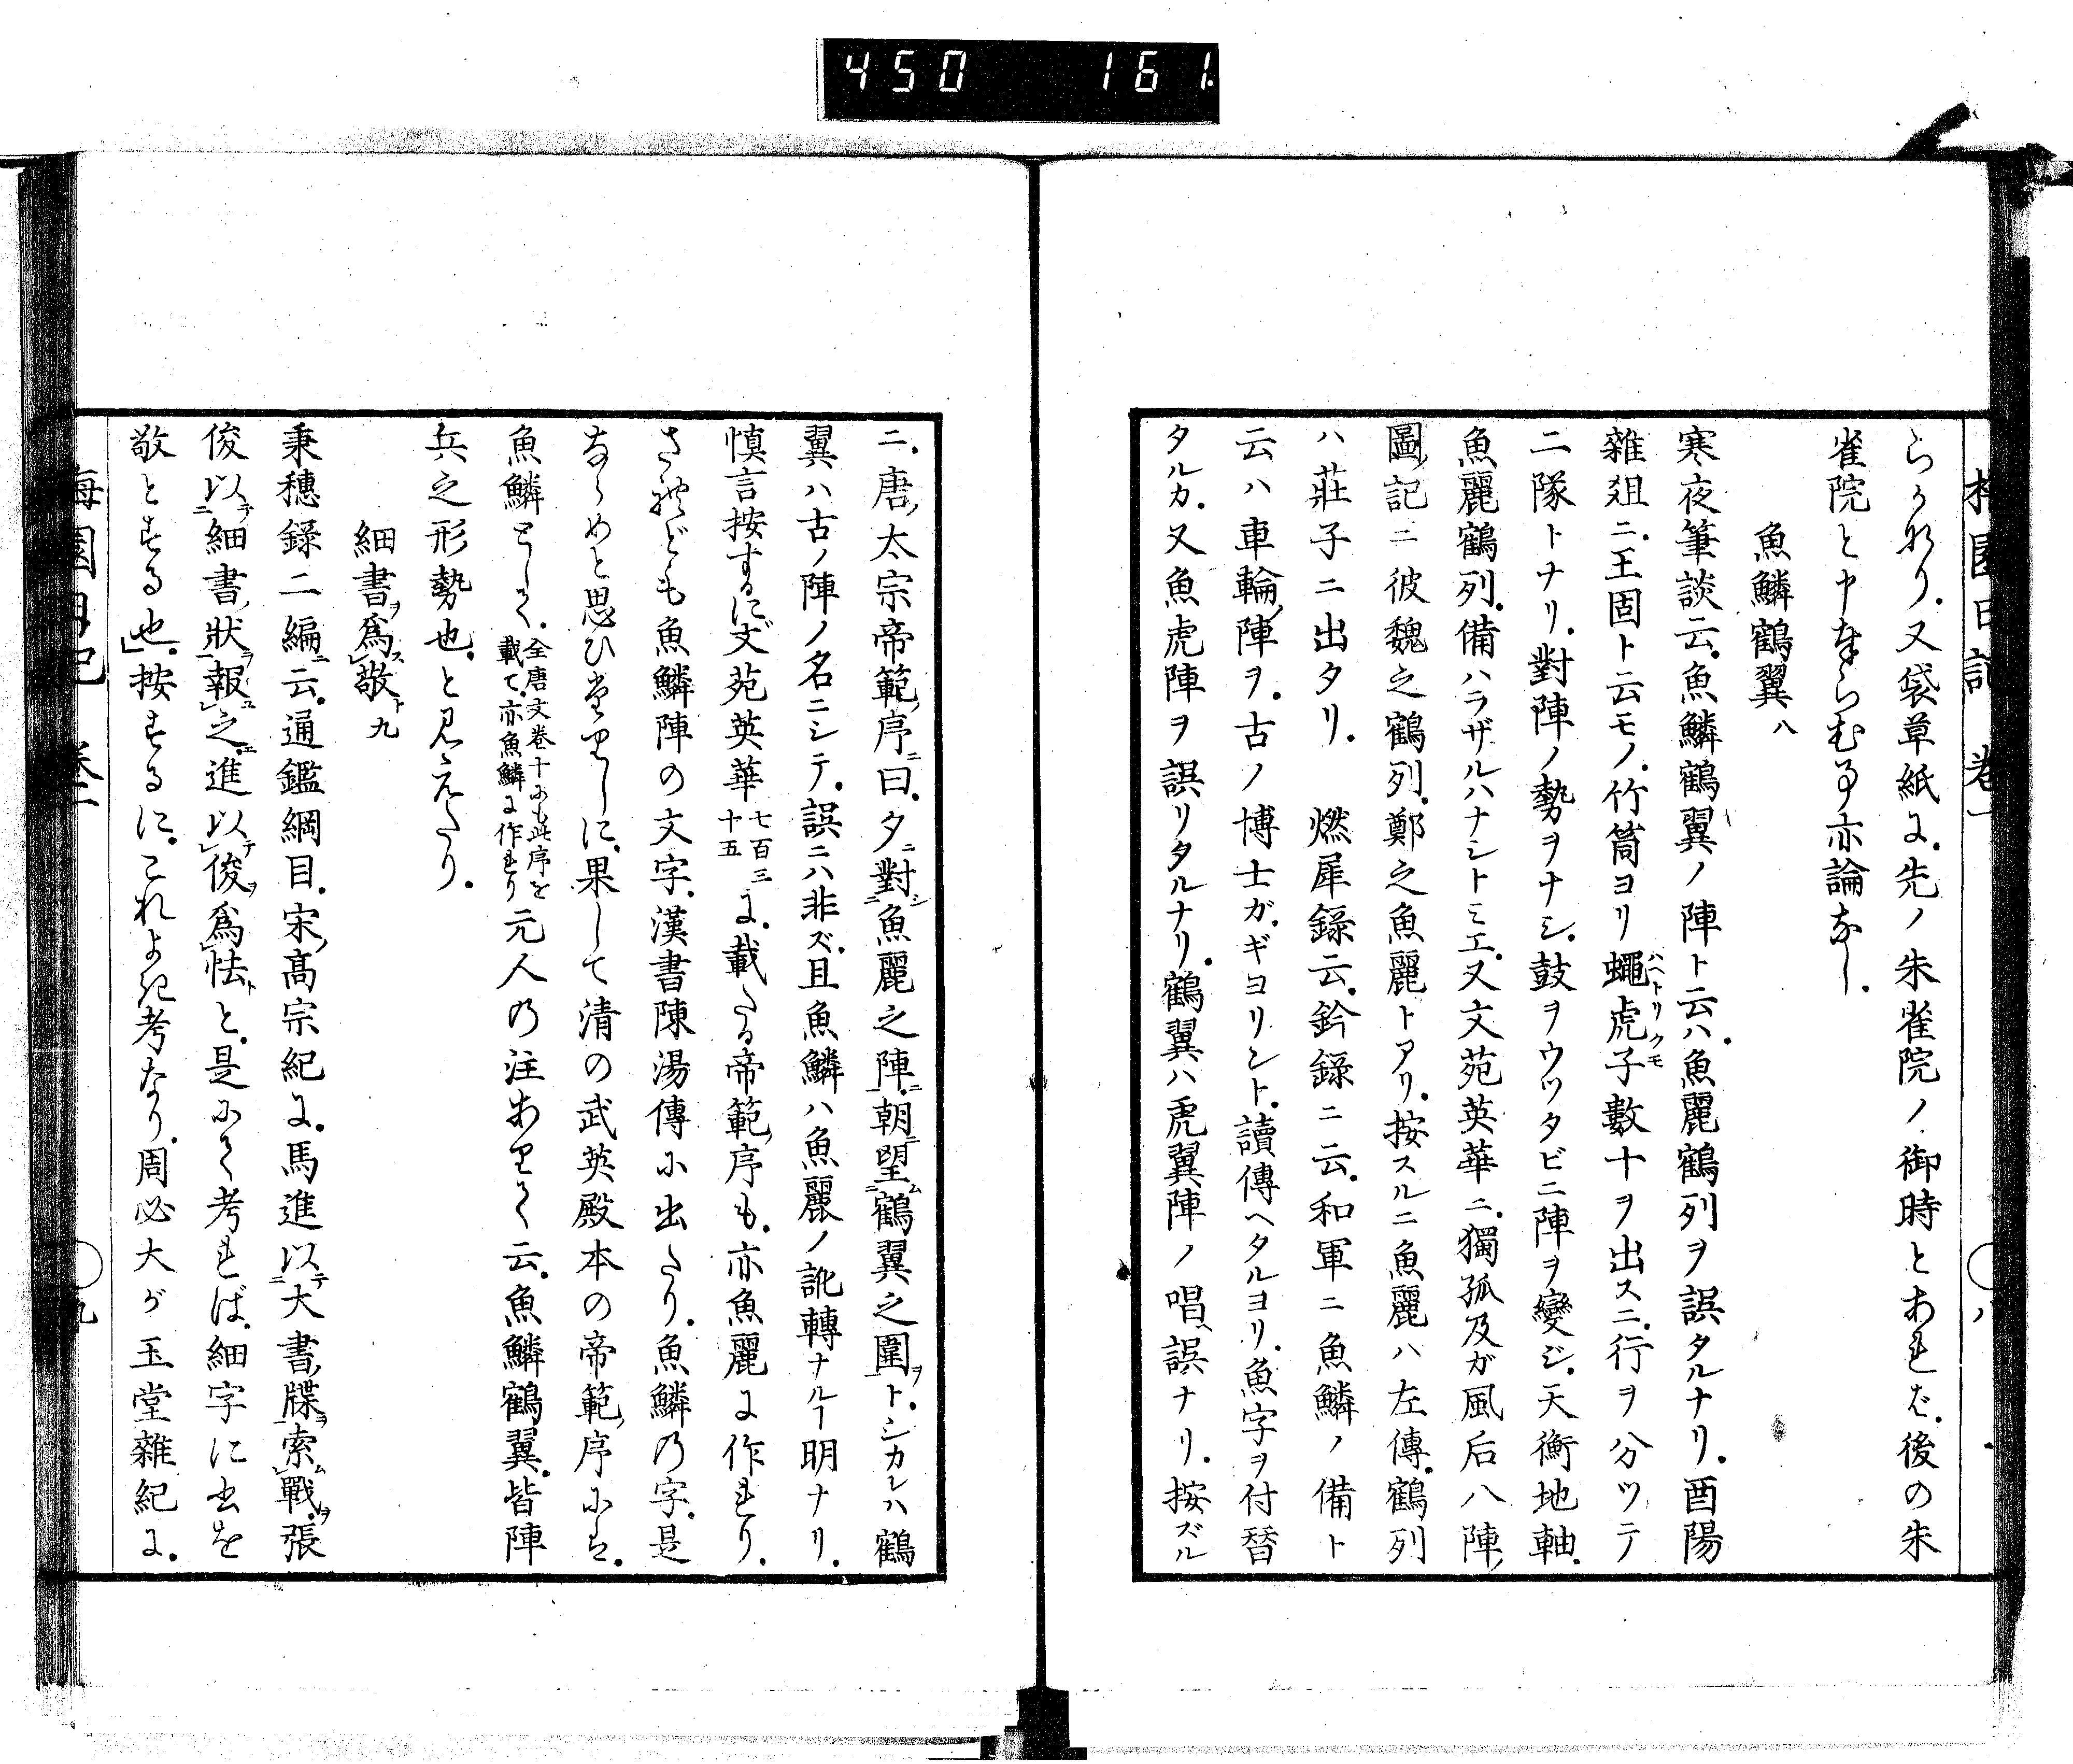 450 161
梅園日記 卷一 ○ 八
らぐ所り.又袋草紙に.先ノ朱雀院ノ御時とあれば.後の朱
雀院と申奉らむ事亦論なし.
魚鱗鶴翼 八
寒夜筆談云.魚鱗鶴翼ノ陣ト云ハ.魚麗鶴列ヲ誤タルナリ.酉陽
雜俎ニ.王固ト云モノ.竹筒ヨリ蠅虎子數十ヲ出スニ.行ヲ分ツテ
ハヘトリクモ
二隊トナリ.對陣ノ勢ヲナシ.鼓ヲウツタビニ陣ヲ變ジ.天衡地軸.
魚麗鶴列.備ハラザルハナシトミエ.又文苑英華ニ.獨孤及ガ風后八陣
圖記ニ彼魏之鶴列.鄭之魚麗トアリ.按スルニ魚麗ハ左傳.鶴列
ハ莊子ニ出タリ.　燃犀錄云.鈐錄ニ云.和軍ニ魚鱗ノ備ト
云ハ車輪陣ヲ.古ノ博士ガ.ギヨリント.讀傳ヘタルヨリ.魚字ヲ付替
タルカ.又魚虎陣ヲ誤リタルナリ.鶴翼ハ虎翼陣ノ唱誤ナリ.按ズル
ニ.唐太宗帝範序ニ曰.夕ニ對シ魚麗之陣ニ.朝ニ望ム鶴翼之圍ヲト.シカレハ鶴
翼ハ古ノ陣ノ名ニシテ.誤ニハ非ズ.且魚鱗ハ魚麗ノ訛轉ナルヿ明ナリ.
愼言按するに.文苑英華七百三十五に.載たる帝範序も.亦魚麗に作れり.
されども魚鱗陣の文字.漢書陳湯傳に出たり.魚鱗の字.是
ならめと思ひ居りしに.果して清の武英殿本の帝範序には.
魚鱗として.全唐文卷十にも此序を載て.亦魚鱗に作れり元人の注ありて云.魚鱗鶴翼.皆陣
兵之形勢也.と見えたり.
細書ヲ爲ス敬ト 九
秉穗錄二編ニ云.通鑑綱目.宋高宗紀に.馬進以テ大書牒ヲ索ム戰ヲ.張
俊以テ細書狀ヲ報ユ之ニ.進以テ俊ヲ爲怯トと.是にて考れば.細字に書を
敬とする也.按ずるに.これよき考なり.周必大が玉堂雜紀に.
梅園日記 卷一 ○ 九